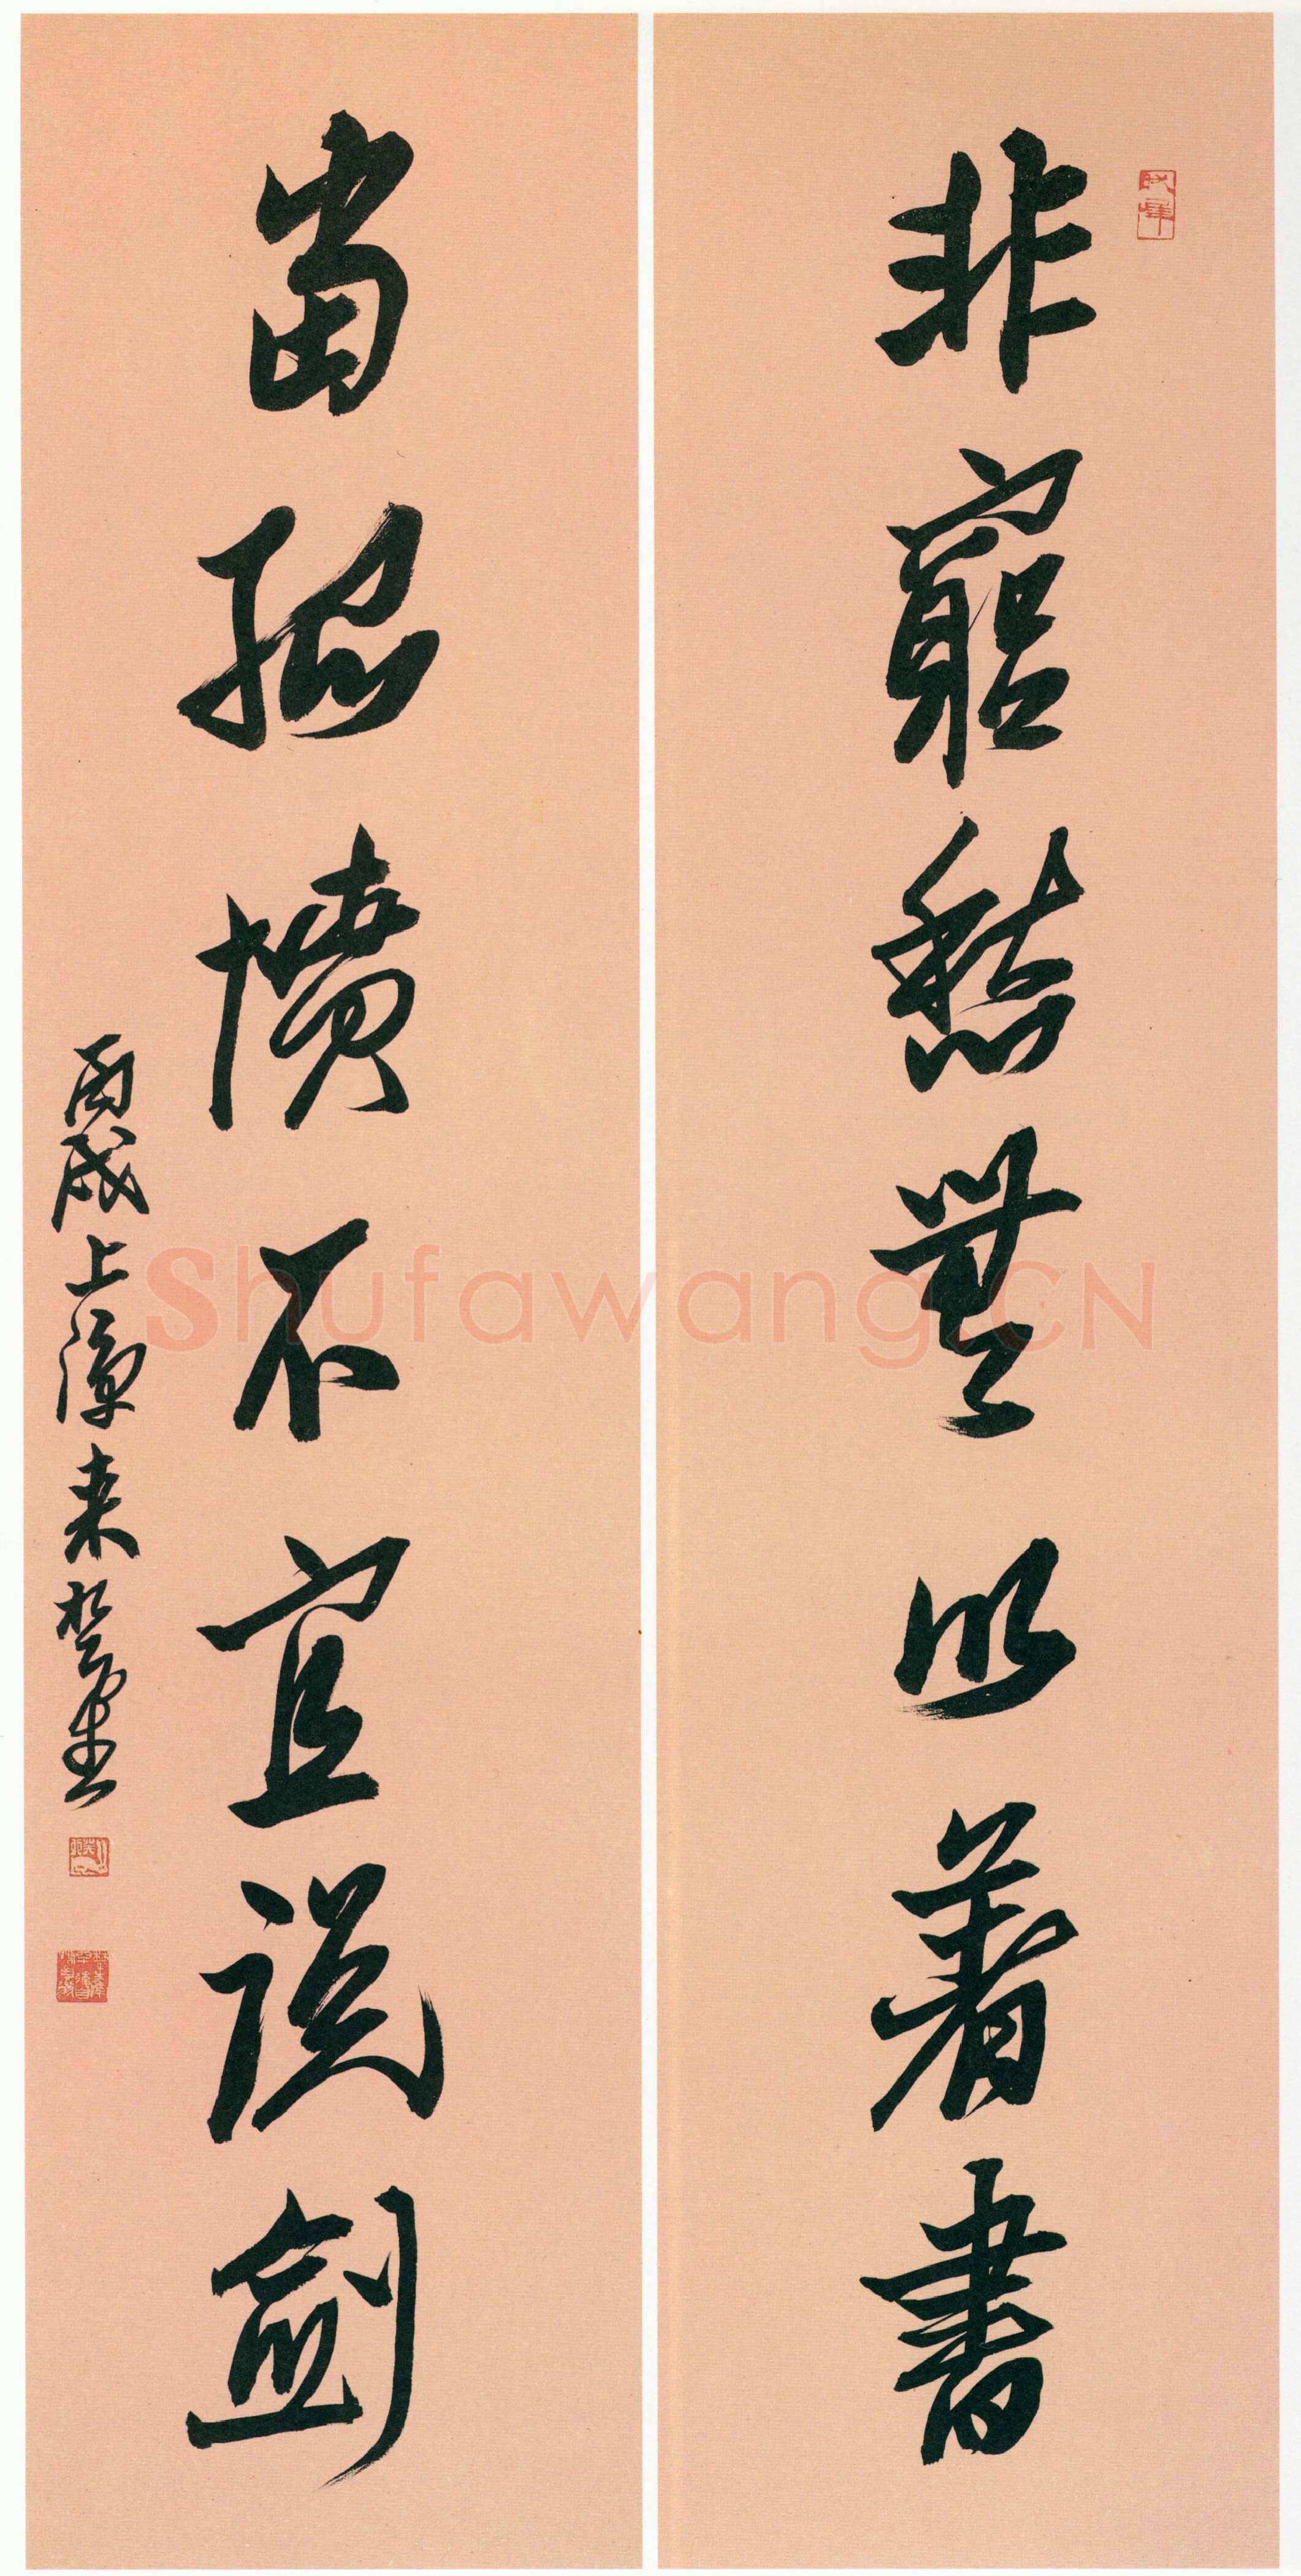 非窮愁無以著書
當孤憤不宜說劍
丙戌上浣來楚生
Shufawang.CN